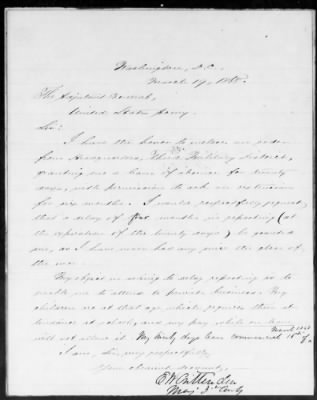 Washington, D.C.,
March 17, 1868.
The Adjutant General,
United States Army.
Sir:
I have the honor to enclose an order
from Headquarters, Third Military District,
granting me a leave of absence for twenty
days, with permission to ask an extension
for six months. I would, respectfully, request
that a delay of four months in reporting (at
the expiration of the twenty days) be granted
me, as I have not had any since the close of
the war.
My object in asking to delay reporting is to
enable me to attend to private business. My
children are at that age which requires their at-
tendance at school, and my pay while on leave
will not allow it. My twenty days leave commenced March 10th
I am, Sir, very respectfully,
Your obedient servant,
E W Crittenden
Maj 5" Cavly